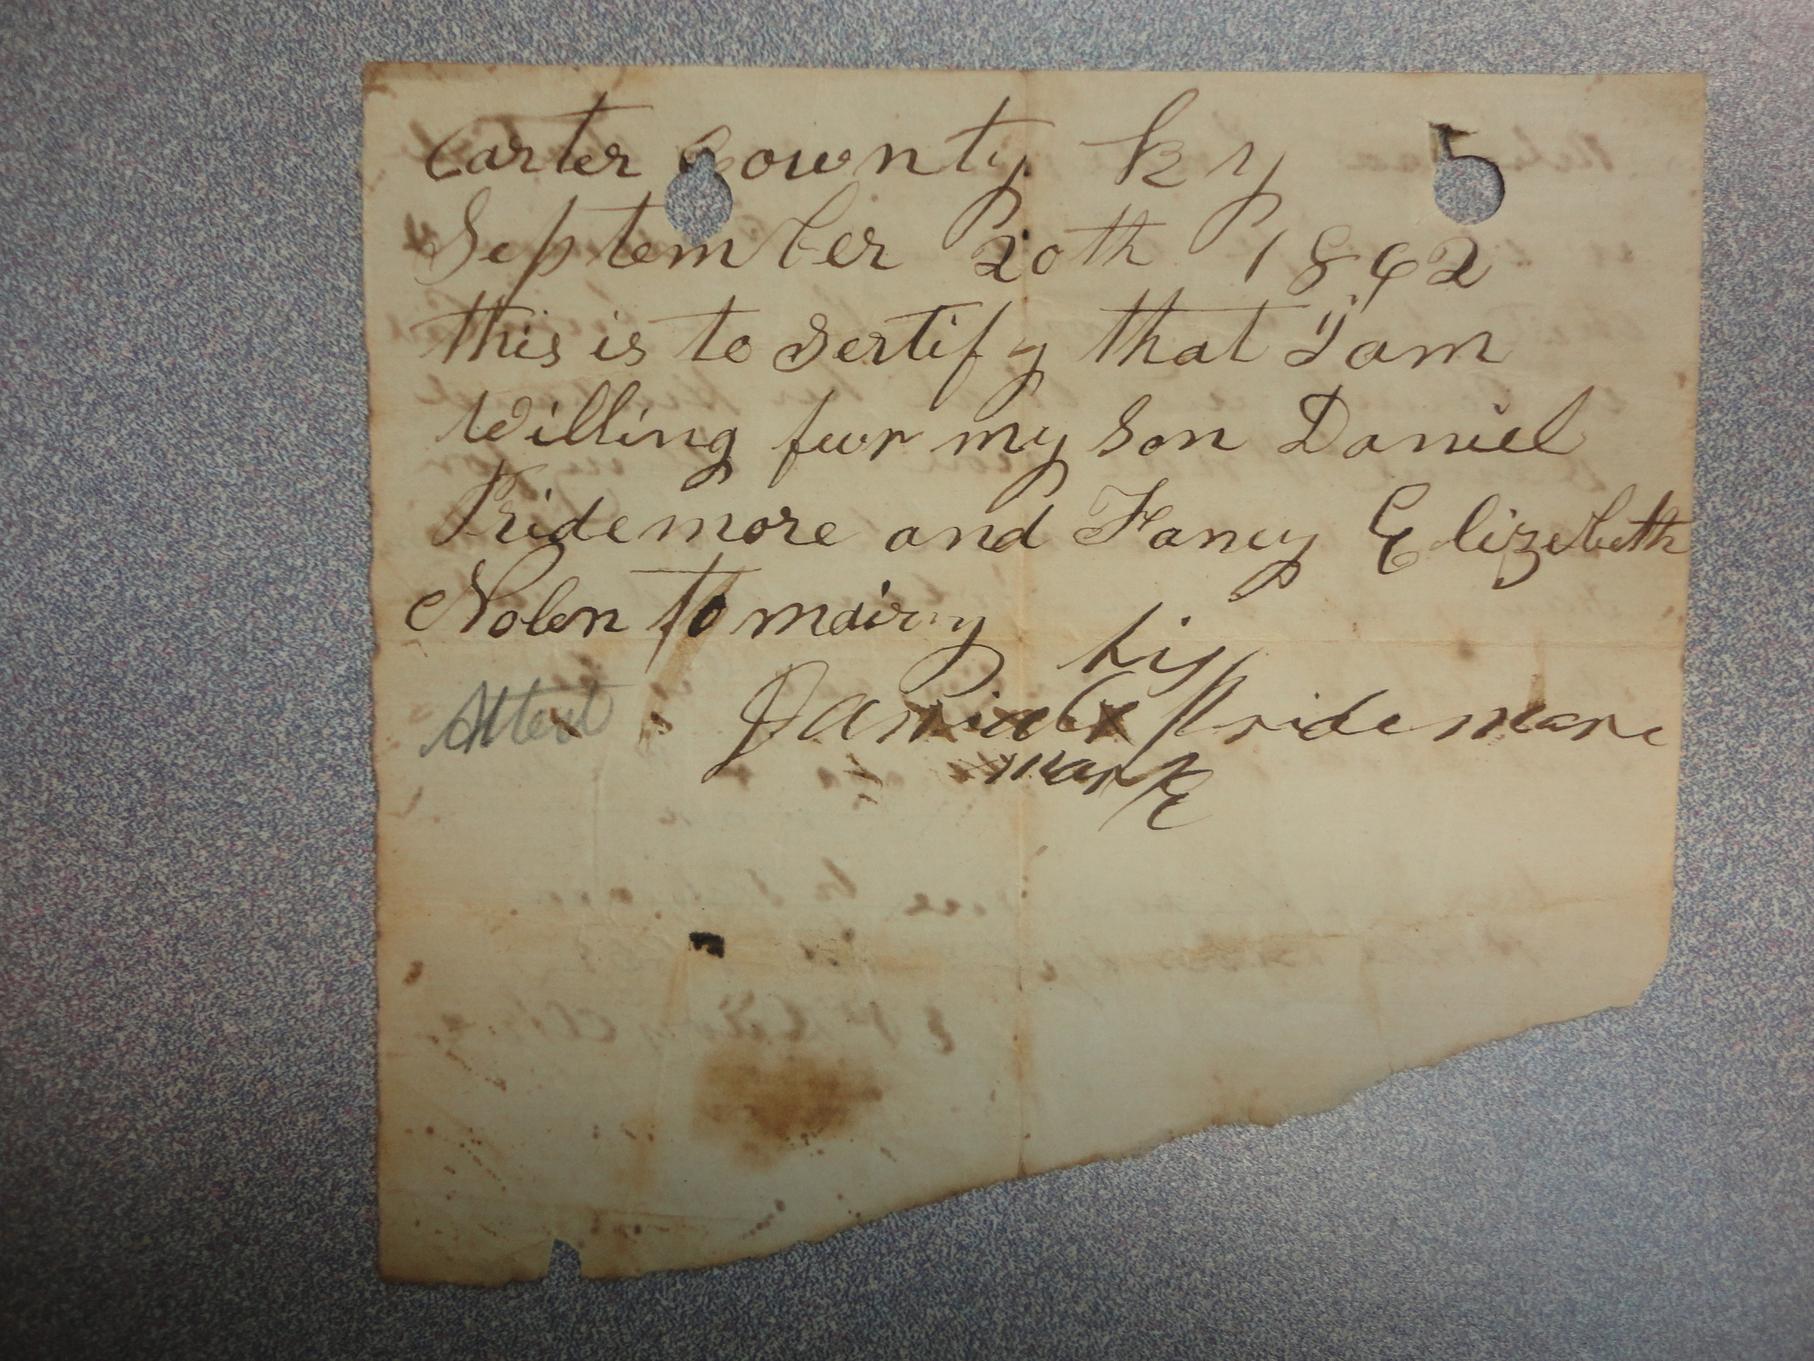 Carter County Ky
September 20th 1862
this is to Sertify that I am
Willing fur my Son Daniel
Pridemore and Fancy Elizebeth
Nolen to mairy
his
Daniel X Pridemore
mark
Attest